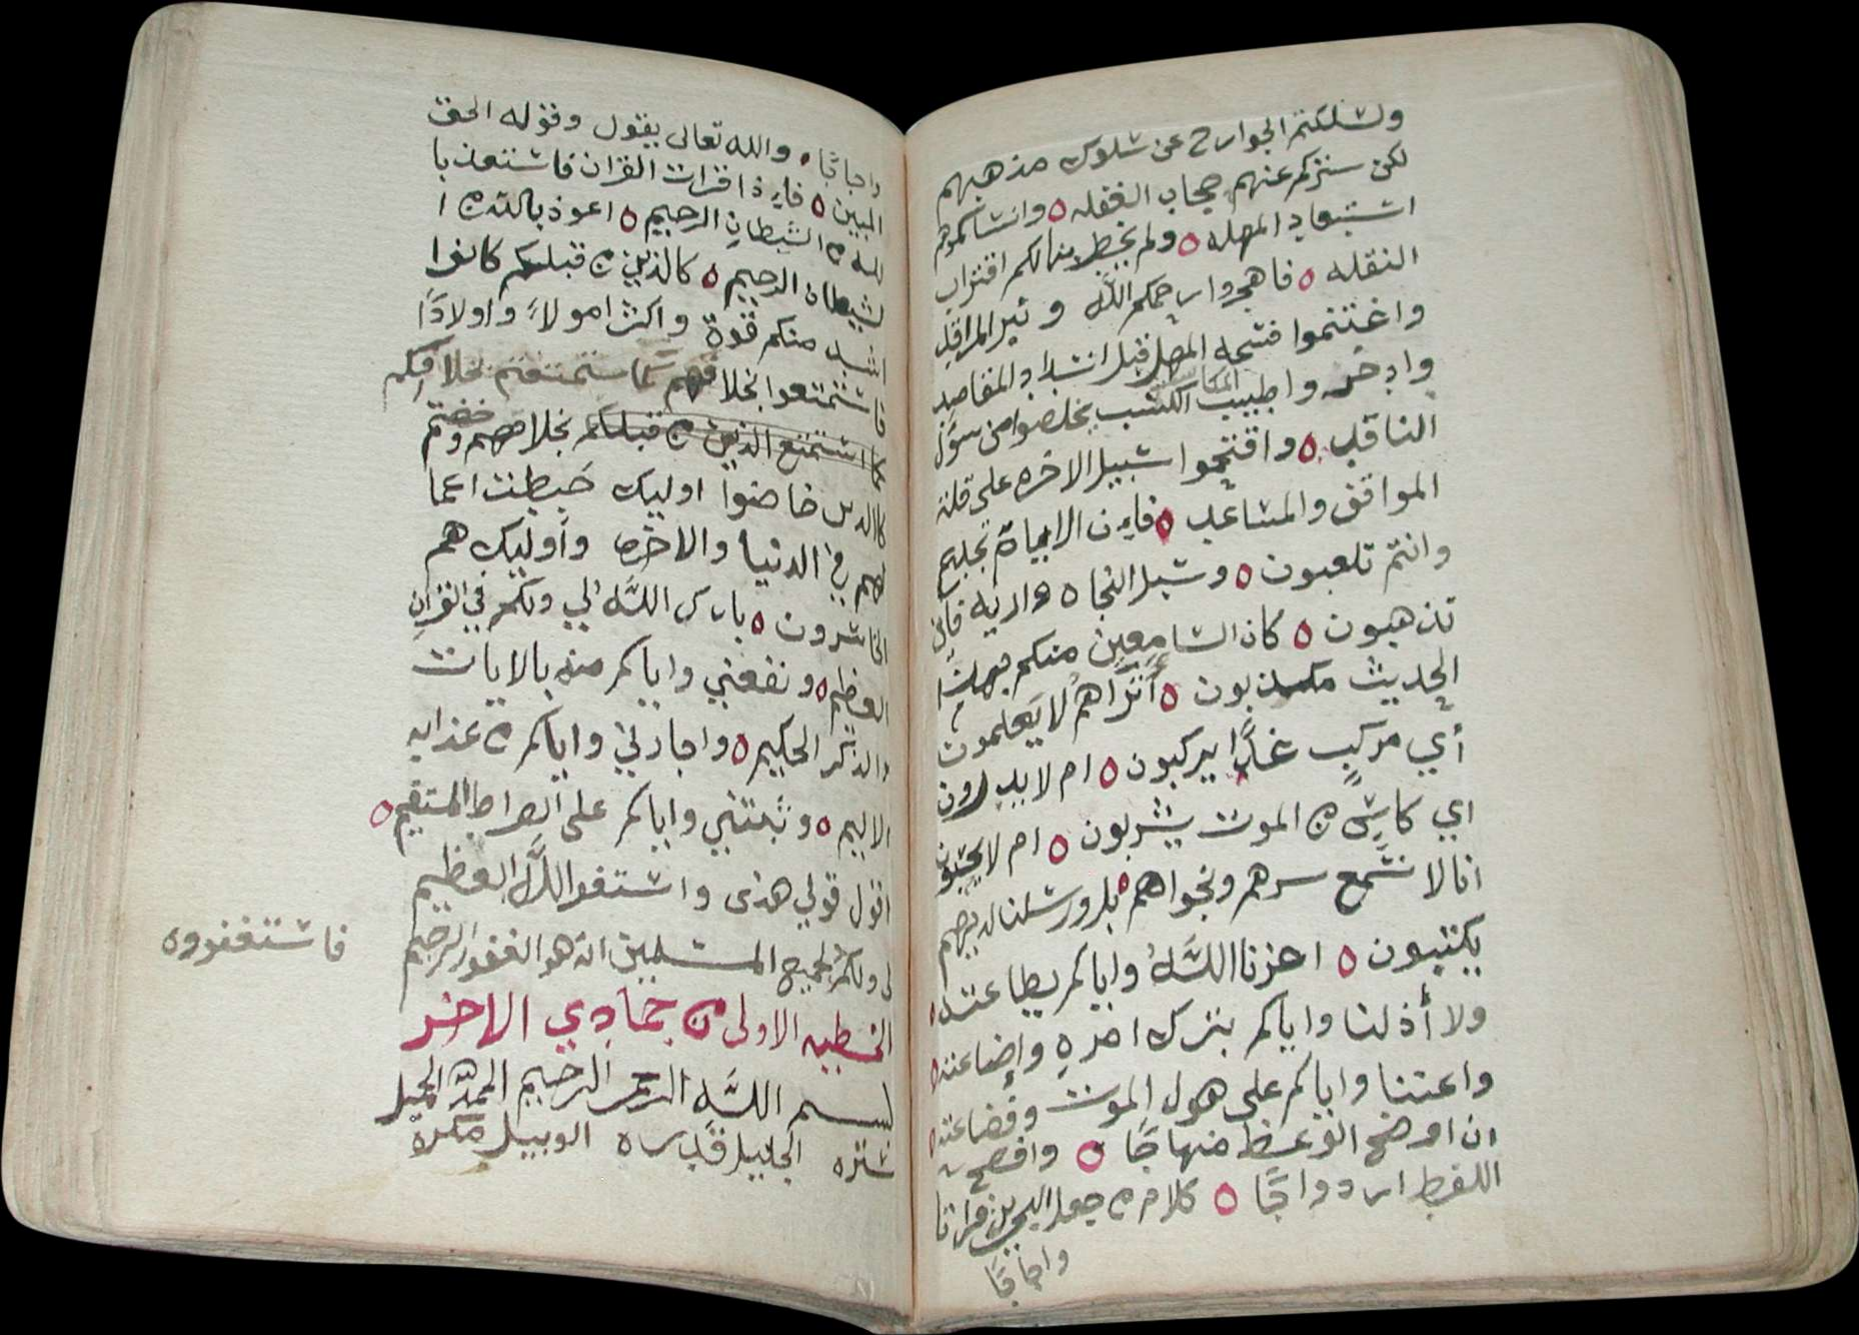 ولشلكتم الجوارح عن شلوك مذهبهم
لكن ستركم عنهم حجاب الغفله ه وانساكموهم
استبعاد المهله ه ولم يخطر ببالكم اقتراب
النقله ه فاهجروا رحمكم اللَّه وثير المراقد
واغتنموا فسحه المهل قبل انسداد المقاصد
المكاسب
واطيب الكسب يخلصوا من سؤَل
الناقد ه واقتحموا شبيل الاخره على قلة
المواقف والمشاعد ه فاءِن الابياة تجليح
وانتم تلعبون ه وشبل النجاه دارئه فانى
تذهبون ه كان الشامعين منكم بهذا
الحديث مكذبون ه أَتراهم لا يَعلمون
أي مركبٍ غدًا يركبون ه ام لا يدرون
اي كاشٍ من الموت يشربون ه ام لا يحسبون
انا لا نشمع سرهم ونجواهم ه بلى ورشلنا لديهم
يكتبون ه احزنا اللَّهُ واياكم بطاعته ه
ولا أذلنا واياكم بترك امره وإضاعته ه
واعتنا واياكم على هول الموت وفضاعته ه
ان اوضح الوعظ منهاجًا ه وافصح
اللفظ ازدواجًا ه كلام من جعل البحرين فراتا
واجاجًا
واجاجًا ه والله تعالى يقول وقوله الحق
المبين ه فاءِذا قرات القران فاشتعذ با
لله من الشيطانِ الرجيم ه اعوذ بالله من ا
لشيطان الرجيم ه كالذين من قبلكم كانوا
اشد منكم قوة واكثر امولاً واولادًا
فاشتمتعوا بخلاقهم كما ستمتعتم بخلاقكم
كما اشتمتع الذين من قبلكم بخلاقهم وخضتم
كالذين خاضوا اوليك حَبطت اعما
لهم في الدنيا والاخره وأوليك هم
الخاشرون ه بارك اللَّه لي ولكم في القرانِ
العظيم ه ونفعني واياكم منه بالايات
والذكر الحكيم ه واجارني واياكم من عذابه
الاليم ه وثبتني واياكم على الصراط المستقيم ه
اقول قولي هذى واشتغفر اللَّه العظيم
لي ولكم ولجميع المشلمين انه هو الغفور الرحيم
فاشتغفروه
الخطبه الاولى من جمادي الاخر
بسم اللَّه الرحمن الرحيم الحمد لله الجميل
شتره الجليل قدره الوبيل مكره